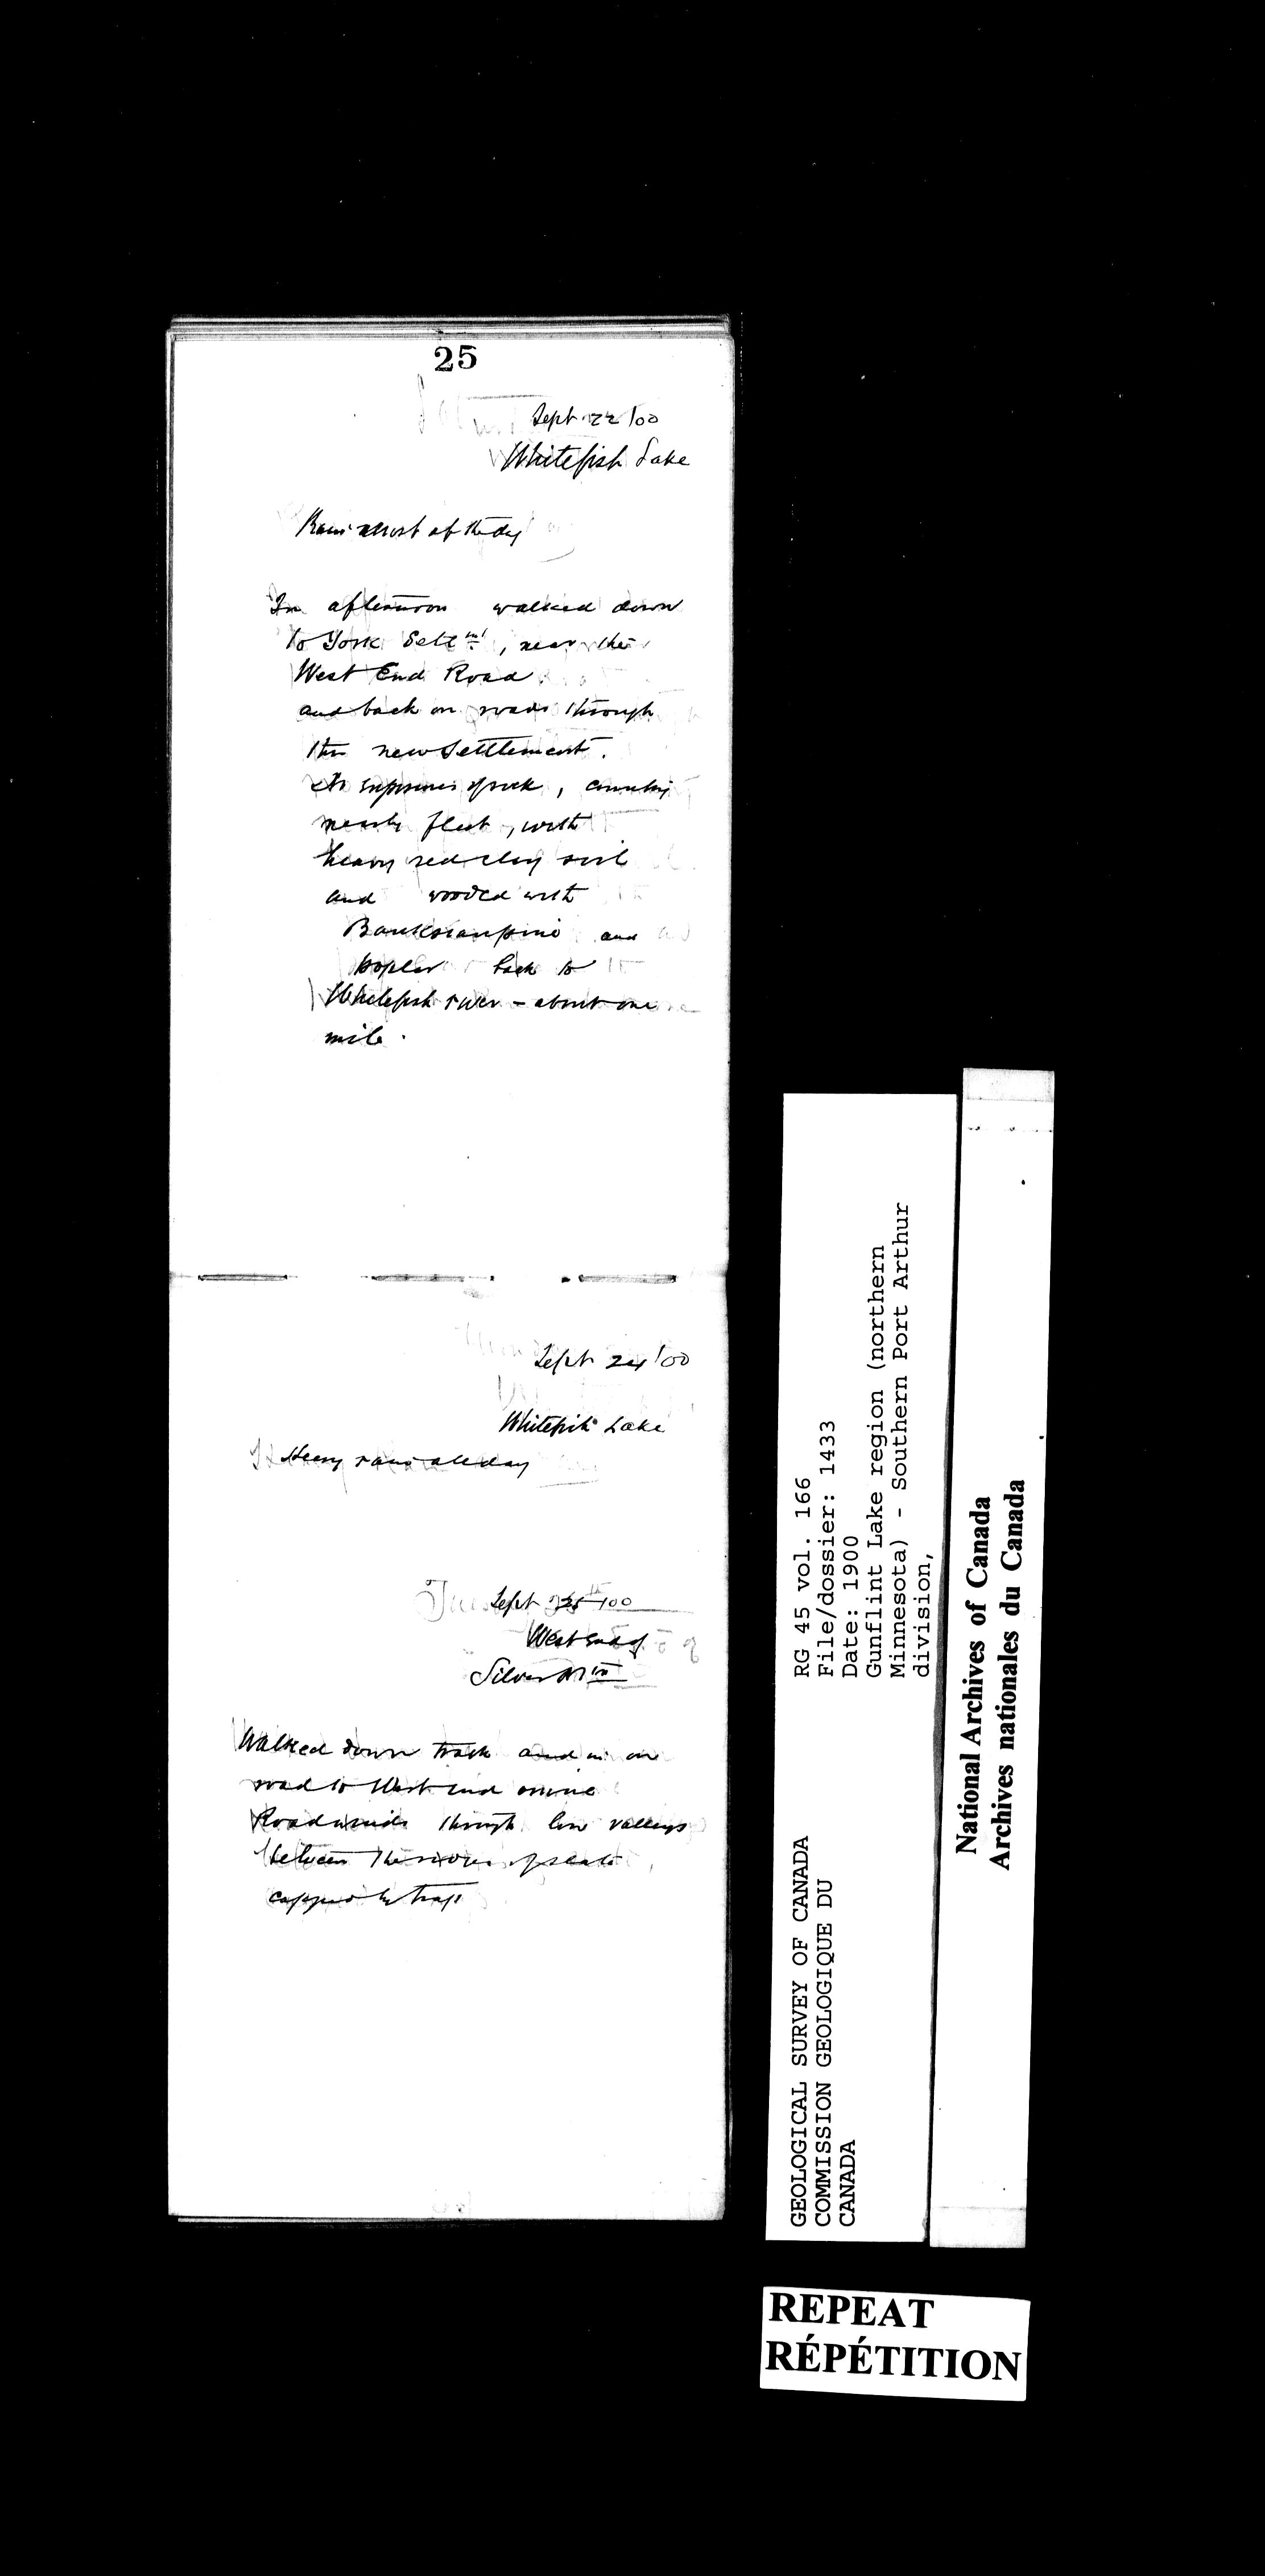 25
Sept 22/00
Whitefish Lake
Rain most of the day
In afternoon walked down
to York Settmt, near the
West End Road
and back on roads through
the new Settlement.
No exposures of rock, country
nearly flat, with
heavy red clay soil
and wooded with
Banksian pine and
poplar back to
Whitefish river - about one
mile.
Sept 24/00
Whitefish Lake
Heavy rain all day
Sept 25th/00
West End of
Silver Mtn
Walked down track and in on
road to West End mine
Road winds through low valleys
between the of slate
capped by trap
RG 45 vol. 166
File/dossier: 1433
Date: 1900
Gunflint Lake region (northern
Minnesota) - Southern Port Arthur
division,
GEOLOGICAL SURVEY OF CANADA
COMMISSION GEOLOGIQUE DU
CANADA
National Archives of Canada
Archives nationales du Canada
REPEAT
RÉPÉTITION